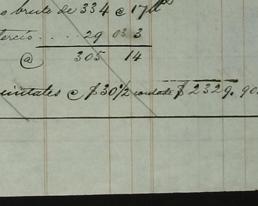 o bruto de 334 @ 17 lbs
tercio .... 29 03 3
@ 305 14
uintales @ $ 30 1/2 contado $ 2329. 90